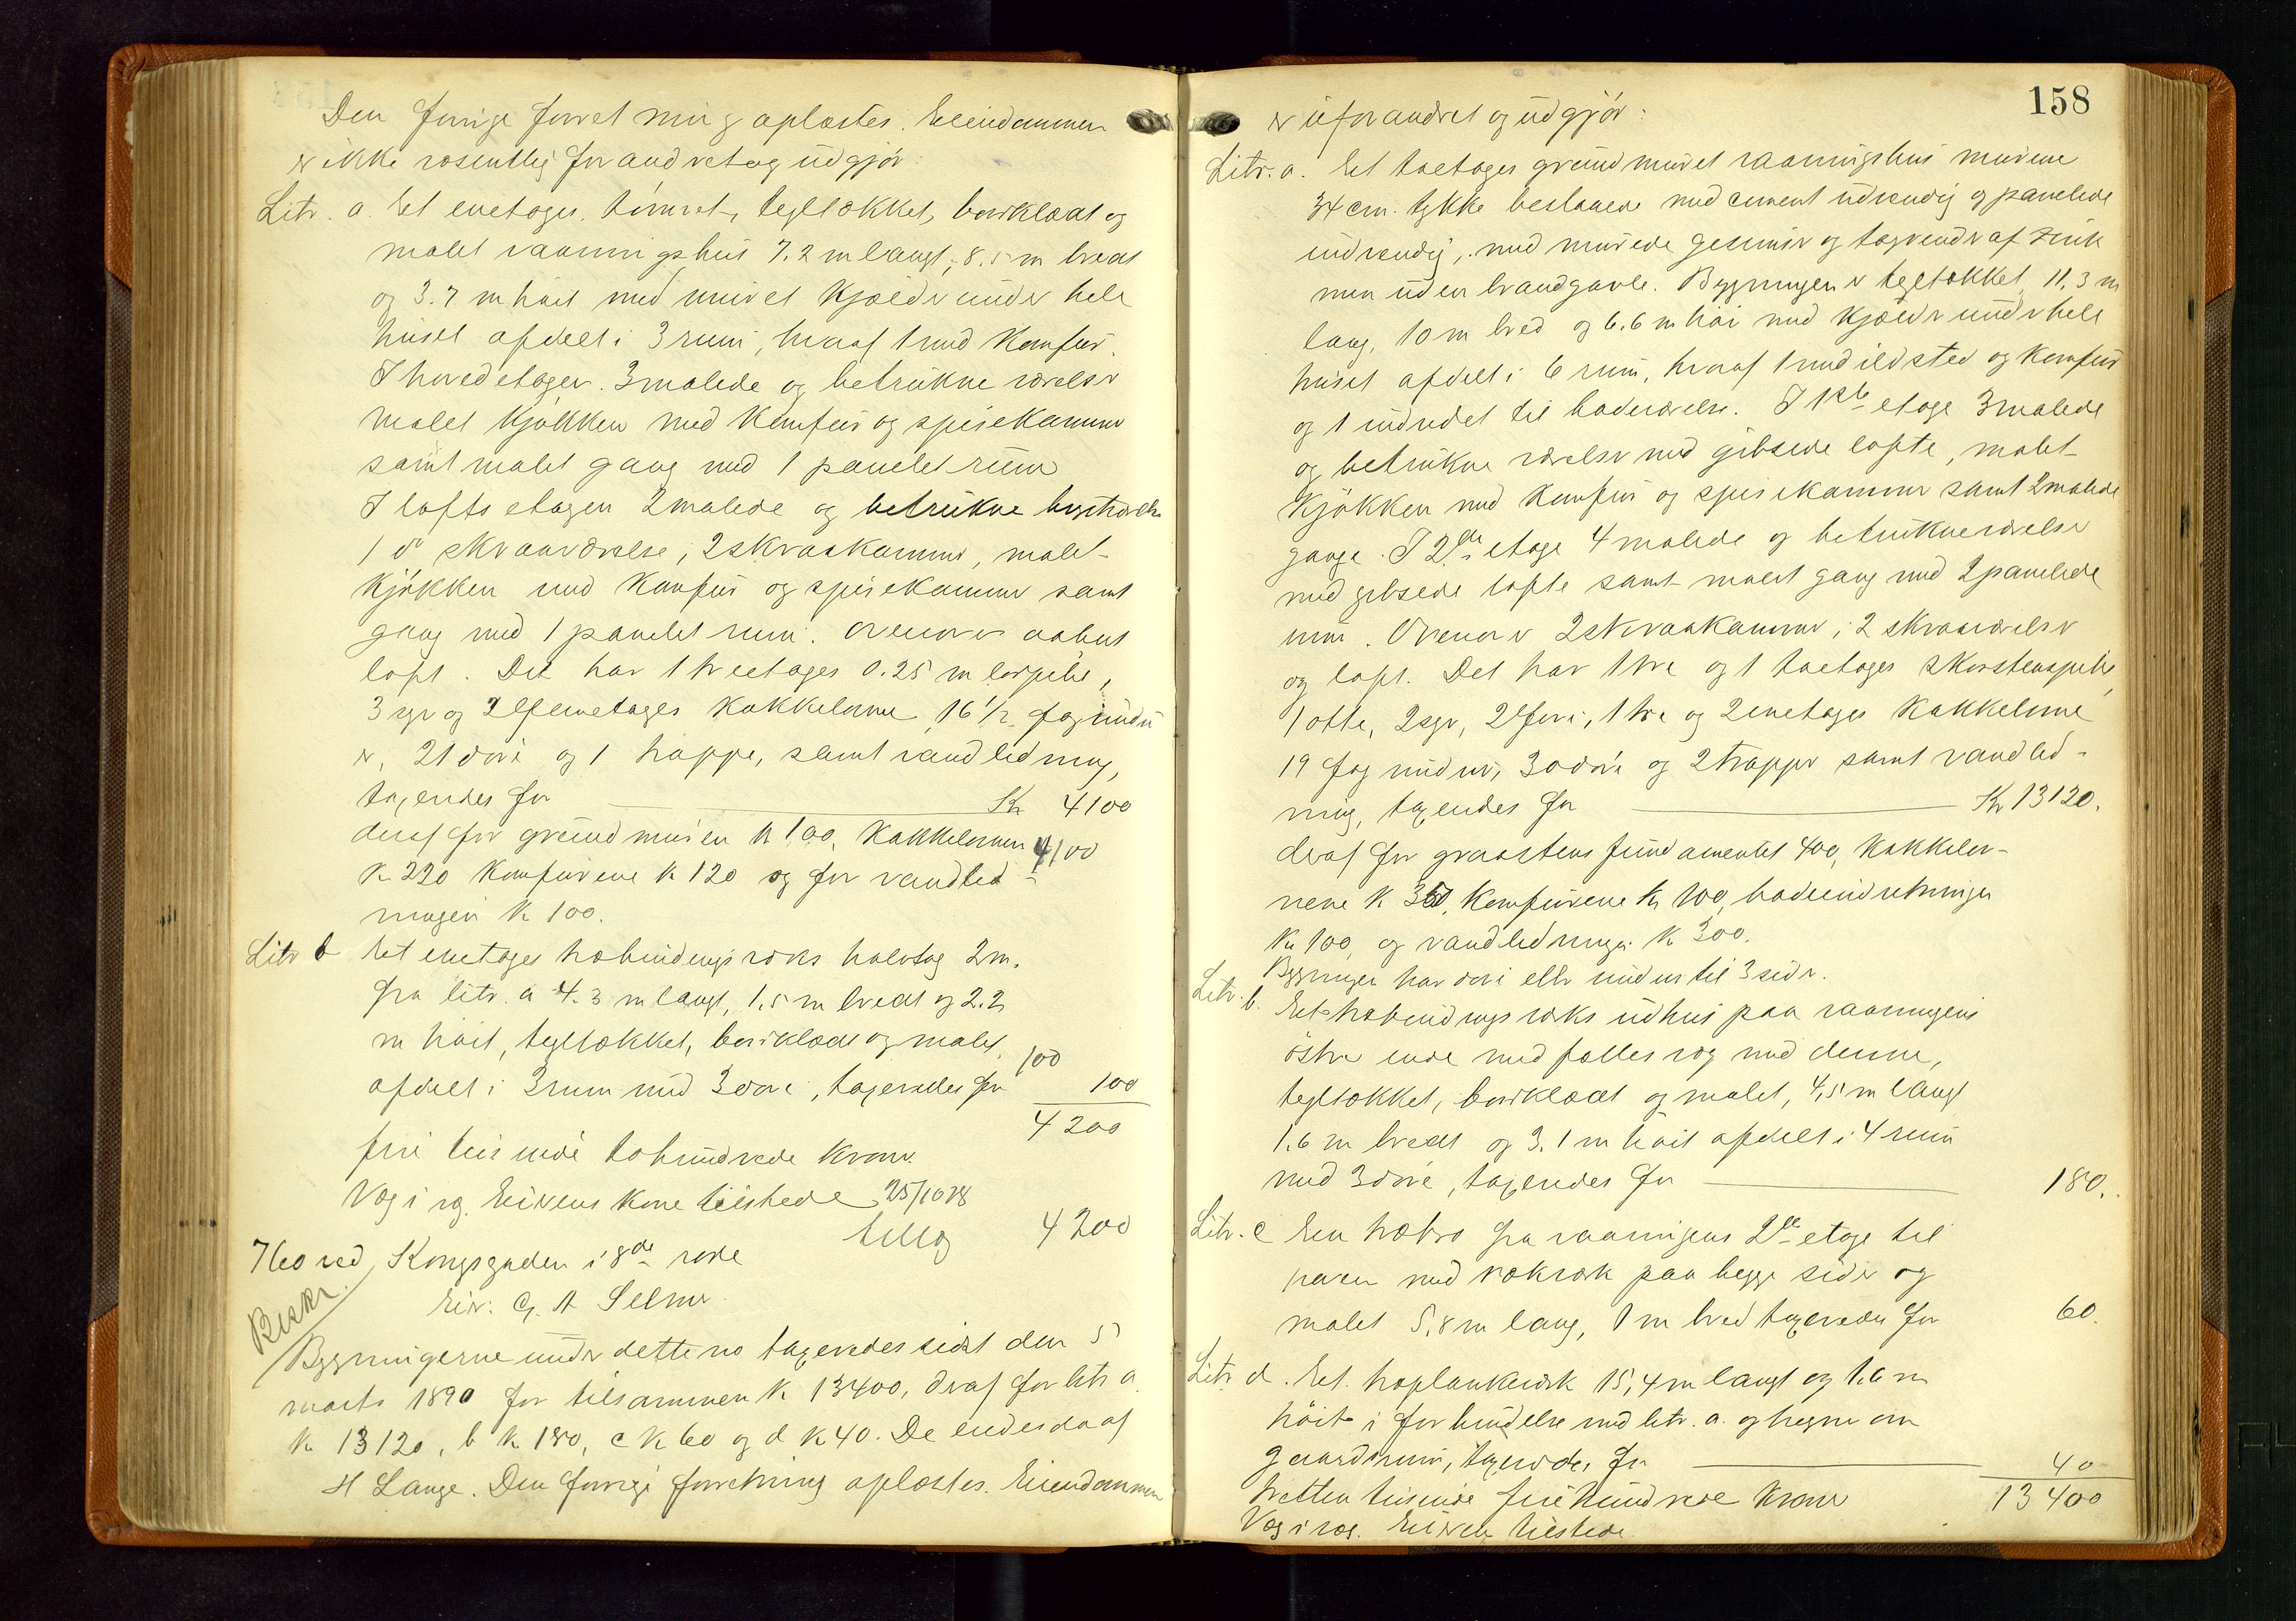 Den forrige forretning oplæstes. Eiendommen
er ikke væsentlig forandret og udgjör:
Litr. a. Et enetages, tömret, tegltækket, bordklædt og
malet vaaningshus 7.2 m langt, 8.5 m bredt
og 3.7 m höit med muret kjælder under hele
huset afdelt i 3 rum, hvoraf 1 med komfur.
I hovedetagen 3 malede og betrukne værelser
malet kjökken med komfur og spisekammer
samt malet gang med 1 panelet rum
I loftsetagen 2 malede og betrukne
1 do skraaværelse, 2 skraakammer, malet
kjökken med komfur og spisekammer samt
gang med 1 panelet rum. Ovenover aabent
loft. Det har 1 treetages 0.25 m
3 og 2 enetages kakkelovne, 16 1/2 fag vindu
er, 21 döre og 1 trappe, samt vandledning,
taxeredes for Kr 4100
deraf for grundmuren kr 100, kakkelovnen 4100
kr 220 komfurene kr 120 og for vandled-
ningen kr 100.
Litr b Et enetages træbindingsværks halvtag 2 m.
fra litr. a 4.3 m langt, 1.5 m bredt og 2.2
m höit, tegltækket, bordklædt og malet,
afdelt i 3 rum med 3 döre, taxeredes for 100 100
4200
fire tusinde tohundrede kroner.
Væg i væg. Eierens kone tilstede 25/10 18
4200
760 ved Kongsgaden i 8de rode
Beskr.
Eier: G. A Selmer
Bygningerne under dette no taxeredes sidst den 5
marts 1890 for tilsammen kr 13400, deraf for litr a
kr 13120, b kr 180, c kr 60 og d kr 40. De eiedes da af
H Lange. Den forrige forretning oplæstes. Eiendommen
158
er uforandret og udgjör:
Litr. a. Et toetages grundmuret vaaningshus murene
34 cm. tykke beslagne med cement udvendig og panelede
indvendig, med murede gesimser og tagrender af zink
men uden brandgavle. Bygningen er tegltækket, 11.3 m
lang, 10 m bred og 6.6 m höi med kjælder under hele
huset afdelt i 6 rum, hvoraf 1 med ildsted og komfur
og 1 indredet til badeværelse. I 1ste etage 3 malede
og betrukne værelser med gibsede lofte, malet
kjökken med komfur og spisekammer samt 2 malede
gange. I 2den etage 4 malede og betrukne værelser
med gibsede lofte samt malet gang med 2 panelede
rum. Ovenover 2 skraakammer, 2 skraaværelser
og loft. Det har 1 tre og 1 toetages skorstenspibe,
1 otte, 2 sex, 2 fire, 1 tre og 2 enetages kakkelovne
19 fag vinduer, 30 döre og 2 trapper samt vandled-
ning, taxeredes for Kr 13120.
deraf for graastens fundamentet 400, kakkelov-
nene kr 350, komfurene kr 100, badeindretningen
kr 100, og vandledningen kr 300.
Bygningen har döre eller vinduer til 3 sider.
Litr. b. Et træbindingsværks udhus paa vaaningens
östre ende med fælles væg med denne,
tegltækket, bordklædt og malet, 4,5 m langt
1.6 m bredt og 3.1 m höit afdelt i 4 rum
med 3 döre, taxeredes for 180.
Litr. c En træbro fra vaaningens 2den etage til
haven med rækværk paa begge sider og
malet 5,8 m lang, 1 m bred taxeredes for 60.
Litr d. Et træplankeværk 15,4 m langt og 1.6 m
höit i forbindelse med litr. a. og hegner om
gaardsrum, taxeredes for 40
tretten tusinde fire hundrede kroner 13400
Væg i væg. Eieren tilstede